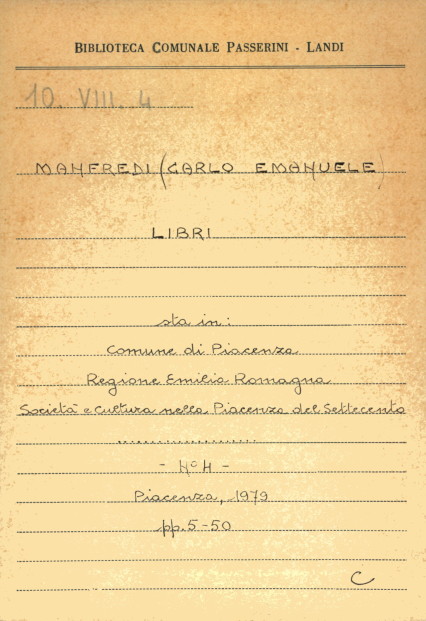 BIBLIOTECA COMUNALE PASSERINI - LANDI
10. VIII. 4
MANFREDI (CARLO EMANUELE)
LIBRI
sta in:
Comune di Piacenza
Regione Emilia Romagna
Società e cultura nella Piacenza del Settecento
....................
- N° 4 -
Piacenza, 1979
pp. 5-50
C